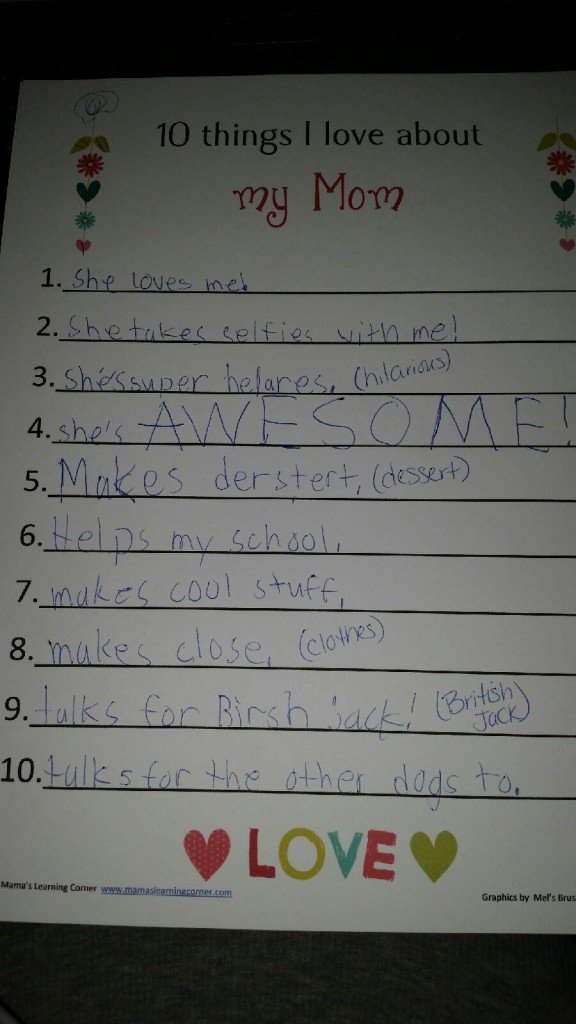 10 things I love about
my Mom
1. She loves me!
2. She takes selfies with me!
3. She's super helares. (hilarious)
4. she's AWESOME!
5. Makes derstert, (dessert)
6. Helps my school,
7. makes cool stuff,
8. makes close, (clothes)
9. talks for Birsh jack! (British Jack)
10. talks for the other dogs to.
LOVE
Mama's Learning Corner www.mamaslearningcorner.com
Graphics by Mel's Brus